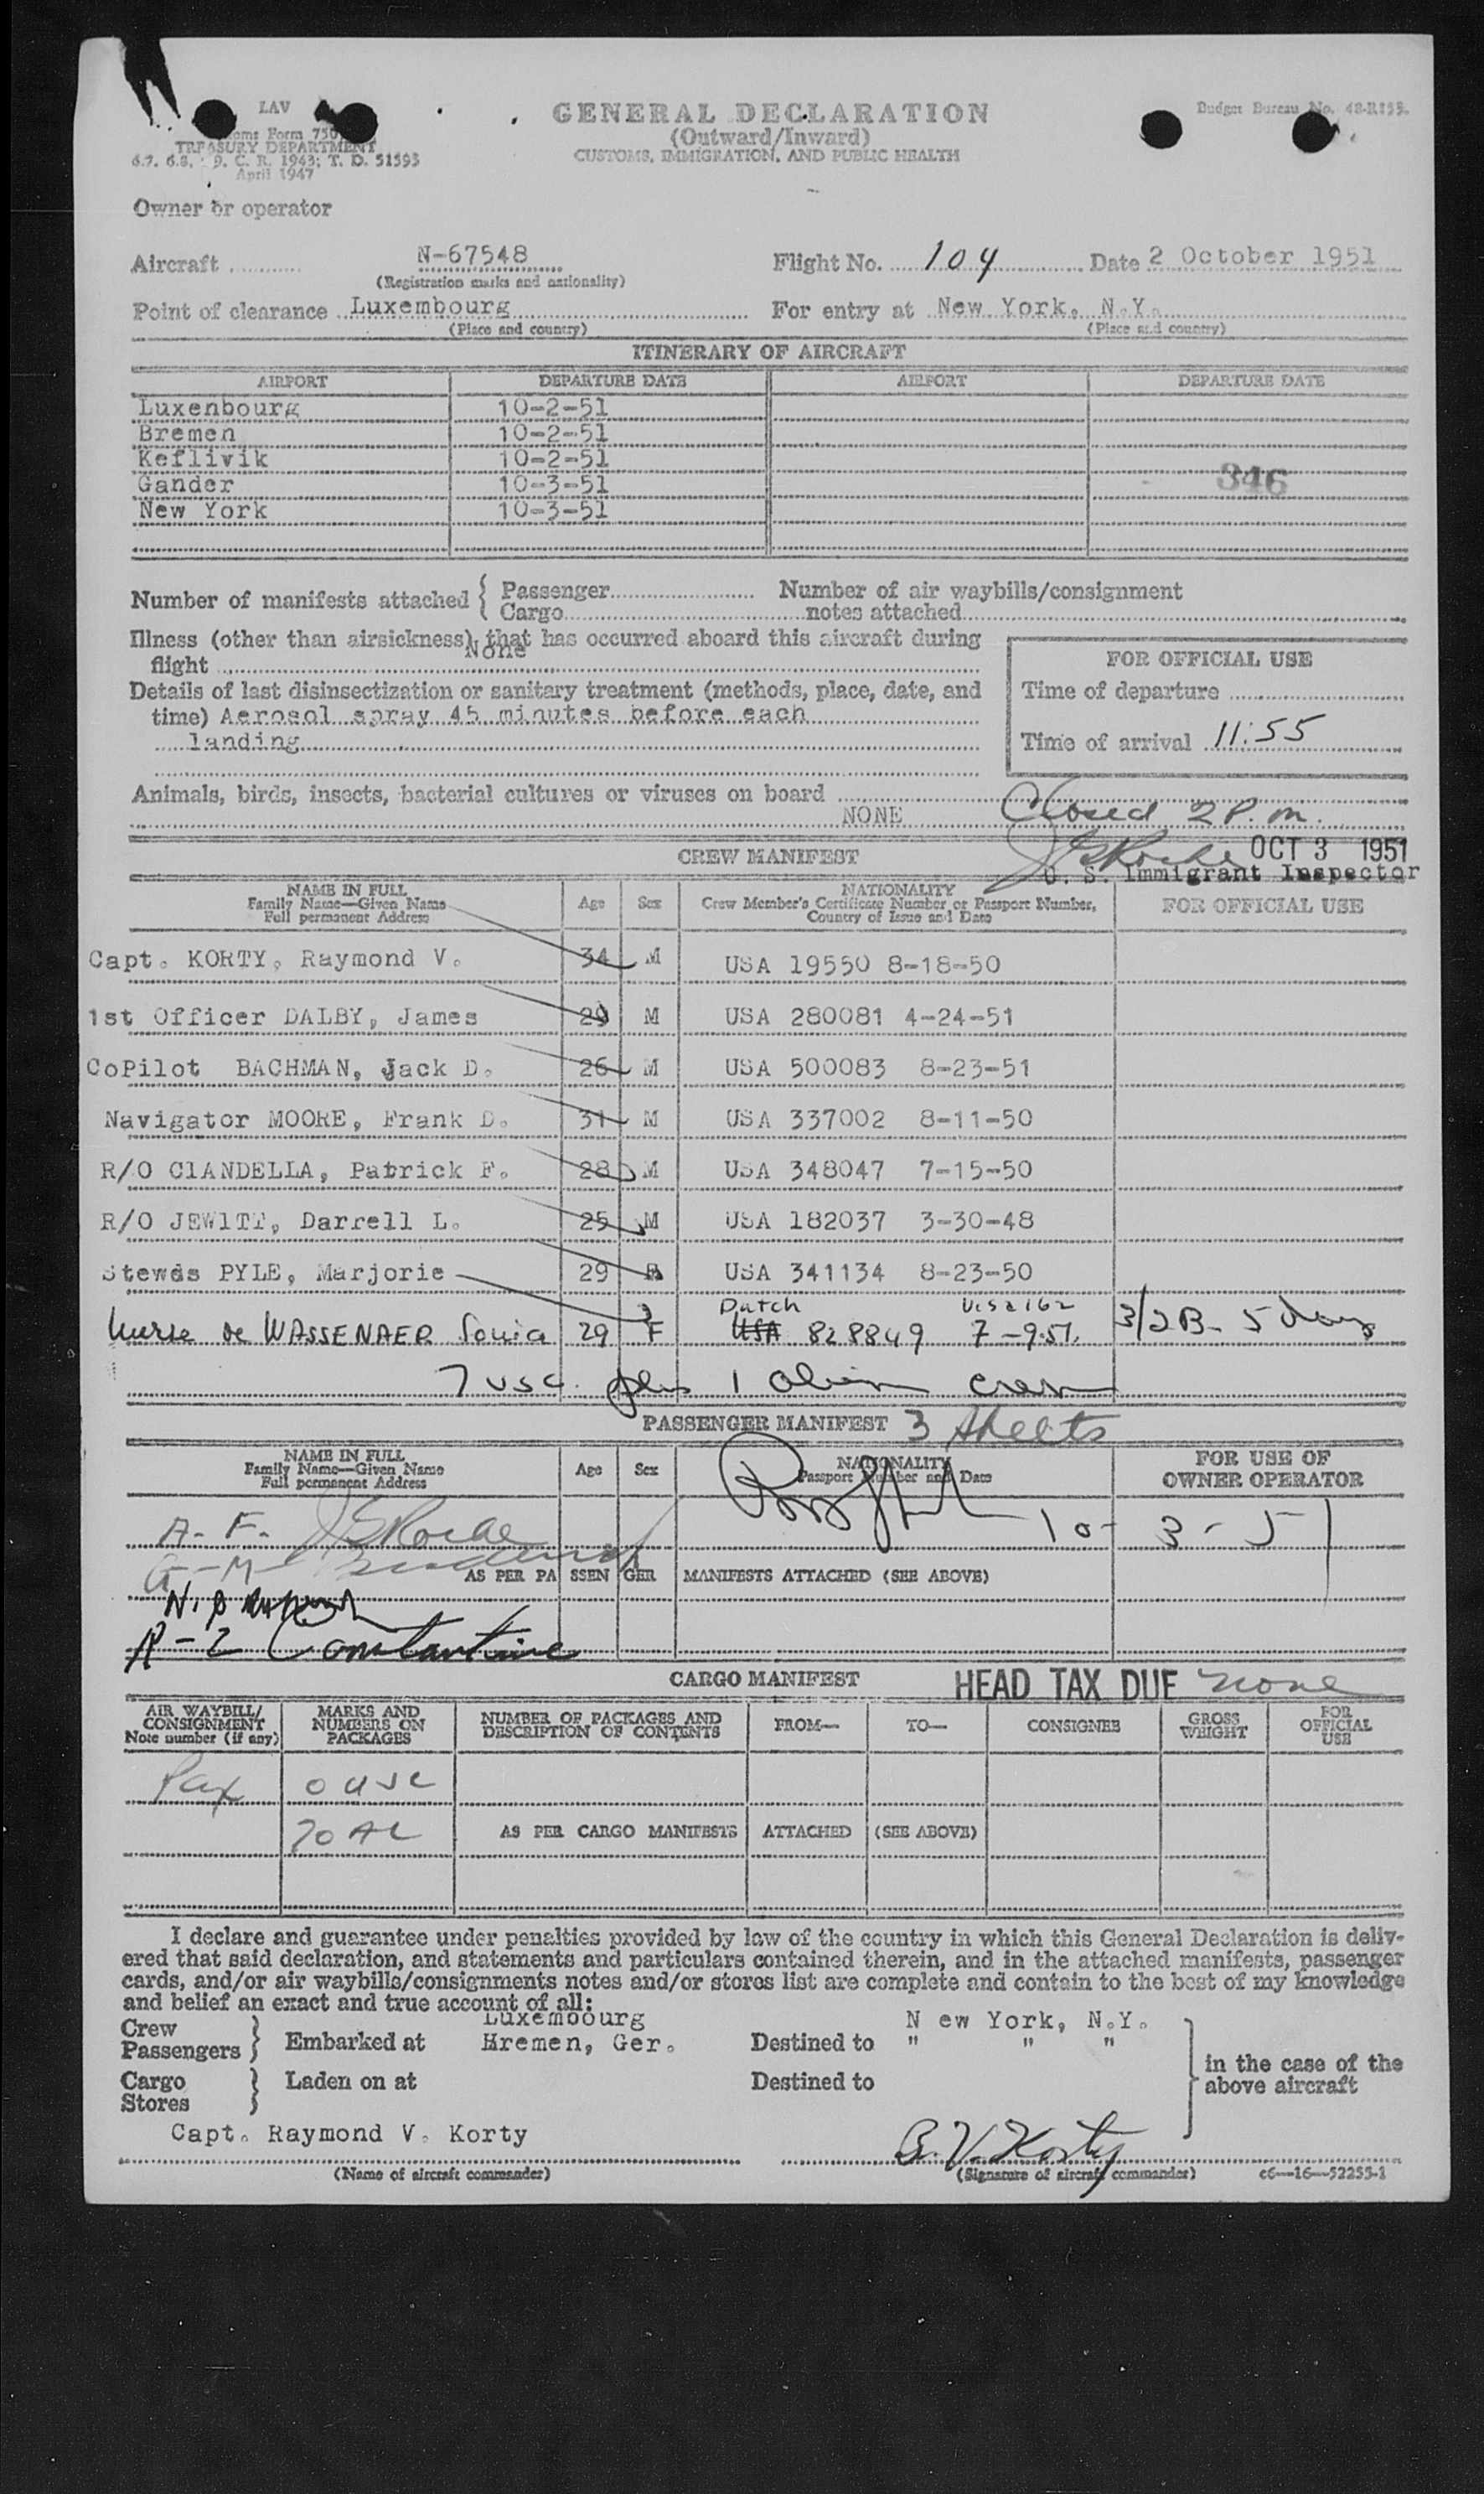 LAV
GENERAL DECLARATION
Budget Bureau No. 48-R155.
(Outward/Inward)
TREASURY DEPARTMENT
CUSTOMS, IMMIGRATION, AND PUBLIC HEALTH
C. R. 1943; T. D. 51593
April 1947
Owner or operator
Aircraft N-67548 Flight No. 104 Date 2 October 1951
(Registration marks and nationality)
Point of clearance Luxembourg For entry at New York, N.Y.
(Place and country) (Place and country)
ITINERARY OF AIRCRAFT
AIRPORT DEPARTURE DATE AIRPORT DEPARTURE DATE
Luxenbourg 10-2-51
Bremen 10-2-51
Keflivik 10-2-51
Gander 10-3-51 346
New York 10-3-51
Number of manifests attached { Passenger Number of air waybills/consignment
Cargo notes attached
Illness (other than airsickness) that has occurred aboard this aircraft during
None
flight
FOR OFFICIAL USE
Details of last disinsectization or sanitary treatment (methods, place, date, and
Time of departure
time) Aerosol spray 45 minutes before each
landing
Time of arrival 11:55
Animals, birds, insects, bacterial cultures or viruses on board
NONE
Closed 2 P.m.
CREW MANIFEST
OCT 3 1951
U. S. Immigrant Inspector
NAME IN FULL
Family Name—Given Name
Full permanent Address
Age Sex
NATIONALITY
Crew Member's Certificate Number or Passport Number,
Country of Issue and Date
FOR OFFICIAL USE
Capt. KORTY, Raymond V. 34 M USA 19550 8-18-50
1st Officer DALBY, James 29 M USA 280081 4-24-51
CoPilot BACHMAN, Jack D. 26 M USA 500083 8-23-51
Navigator MOORE, Frank D. 31 M USA 337002 8-11-50
R/O C1ANDELLA, Patrick F. 28 M USA 348047 7-15-50
R/O JEW1TT, Darrell L. 25 M USA 182037 3-30-48
Stewds PYLE, Marjorie 29 USA 341134 8-23-50
Dutch Visa 162
Nurse de WASSENAER Sonia 29 F USA 828849 7-9-51. 3/2B - 5 days
7 usc. plus 1 alien crew
PASSENGER MANIFEST 3 sheets
NAME IN FULL
Family Name—Given Name
Full permanent Address
Age Sex
NATIONALITY
Passport Number and Date
FOR USE OF
OWNER OPERATOR
A. F. 10-3-51
G-M
AS PER PASSENGER MANIFESTS ATTACHED (SEE ABOVE)
R-Z Constantine
CARGO MANIFEST HEAD TAX DUE none
AIR WAYBILL/
CONSIGNMENT
Note number (if any)
MARKS AND
NUMBERS ON
PACKAGES
NUMBER OF PACKAGES AND
DESCRIPTION OF CONTENTS
FROM— TO— CONSIGNEE
GROSS
WEIGHT
FOR
OFFICIAL
USE
Pax 0 usc
70 AL AS PER CARGO MANIFESTS ATTACHED (SEE ABOVE)
I declare and guarantee under penalties provided by law of the country in which this General Declaration is deliv-
ered that said declaration, and statements and particulars contained therein, and in the attached manifests, passenger
cards, and/or air waybills/consignments notes and/or stores list are complete and contain to the best of my knowledge
and belief an exact and true account of all:
Luxembourg N ew York, N.Y.
Crew
Passengers } Embarked at Hremen, Ger. Destined to " " "
Cargo
Stores } Laden on at Destined to
in the case of the
above aircraft
Capt. Raymond V. Korty R. V. Korty
(Name of aircraft commander) (Signature of aircraft commander) c6—16—52255-1